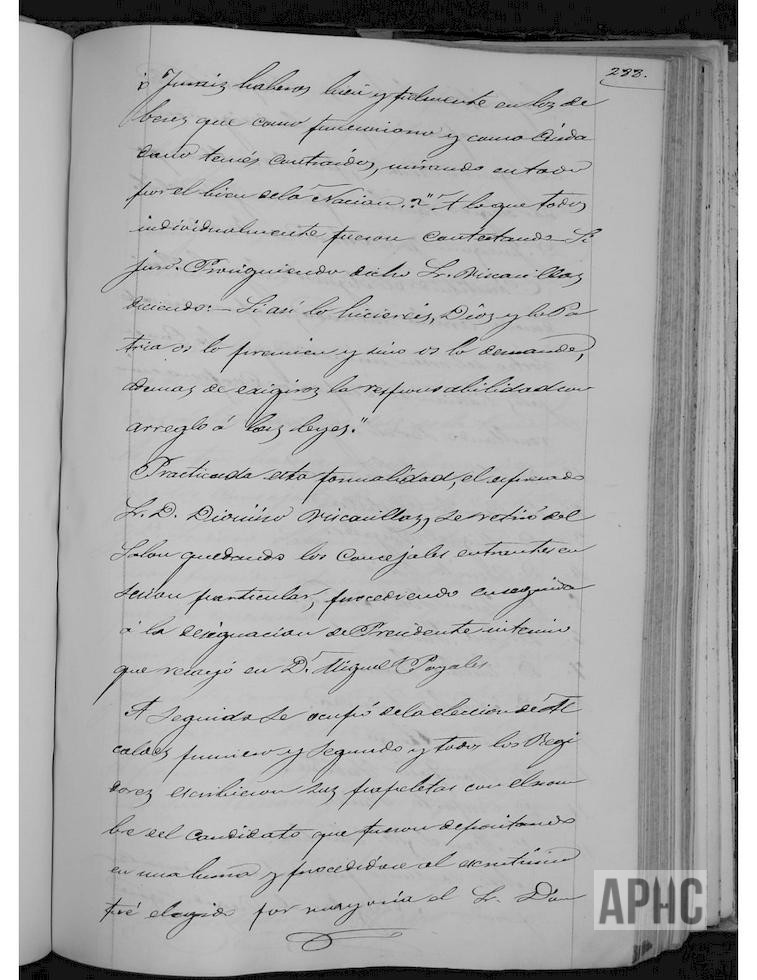 233.
¿Jurais haberos bien y fielmente en los de
beres que como funcionario y como Ciuda
dano teneis contraidos, mirando en todo
por el bien de la Nacion.?" A lo que todos
individualmente fueron contestando - Si
juro. Prosiguiendo dicho Sr. Viscasillas
diciendo: - Si asi lo hiciereis, Dios y la Pa
tria os lo premien y sino os lo demande,
ademas de exigiros la responsabilidad con
arreglo á las leyes."
Practicada esta formalidad, el espresado
Sr. D. Dionisio Viscasillas, se retiró del
Salon quedando los Concejales entrantes en
sesion particular, procediendo enseguida
á la designacion de Presidente interino
que recayó en D. Miguel
A seguida se ocupó de la eleccion de Al
caldes primero y segundo y todos los Regi
dores escribieron sus papeletas con el nom
bre del candidato que fueron depositando
en una urna y procedidose al escrutinio
fué elegido por mayoria el Sr. Don
APHC